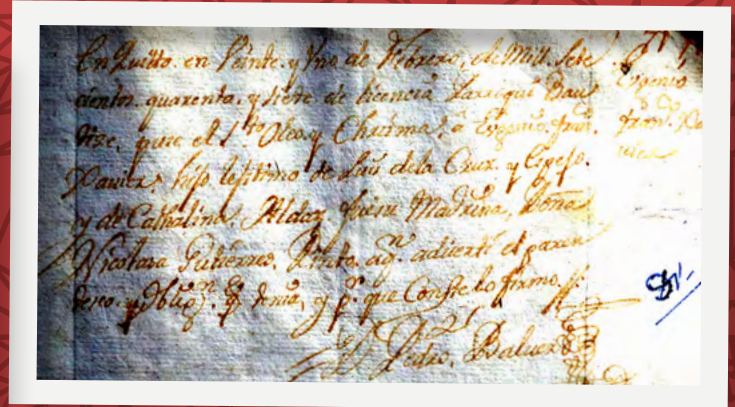 En Quitto. en Veinte. y Uno de Febrero, de Mill. Sete
cientos. quarenta. y siete de licencia Parroqui Bau
tize, puse el Sto. Oleo. y Chrisma. â Eugenio. Fran.
Xavier, hijo lexitimo de Luis dela Cruz. y Espejo.
y de Cathalina. Aldaz, fuere Madrina, Doña
Nicolasa Gutierrez. Pinto. aqn. adverti el paren
tesco. y Obligon. q. tenia, y pa. que Conste lo firmo.
Pedro. Balver
Eugenio
Franco. Xa
vier